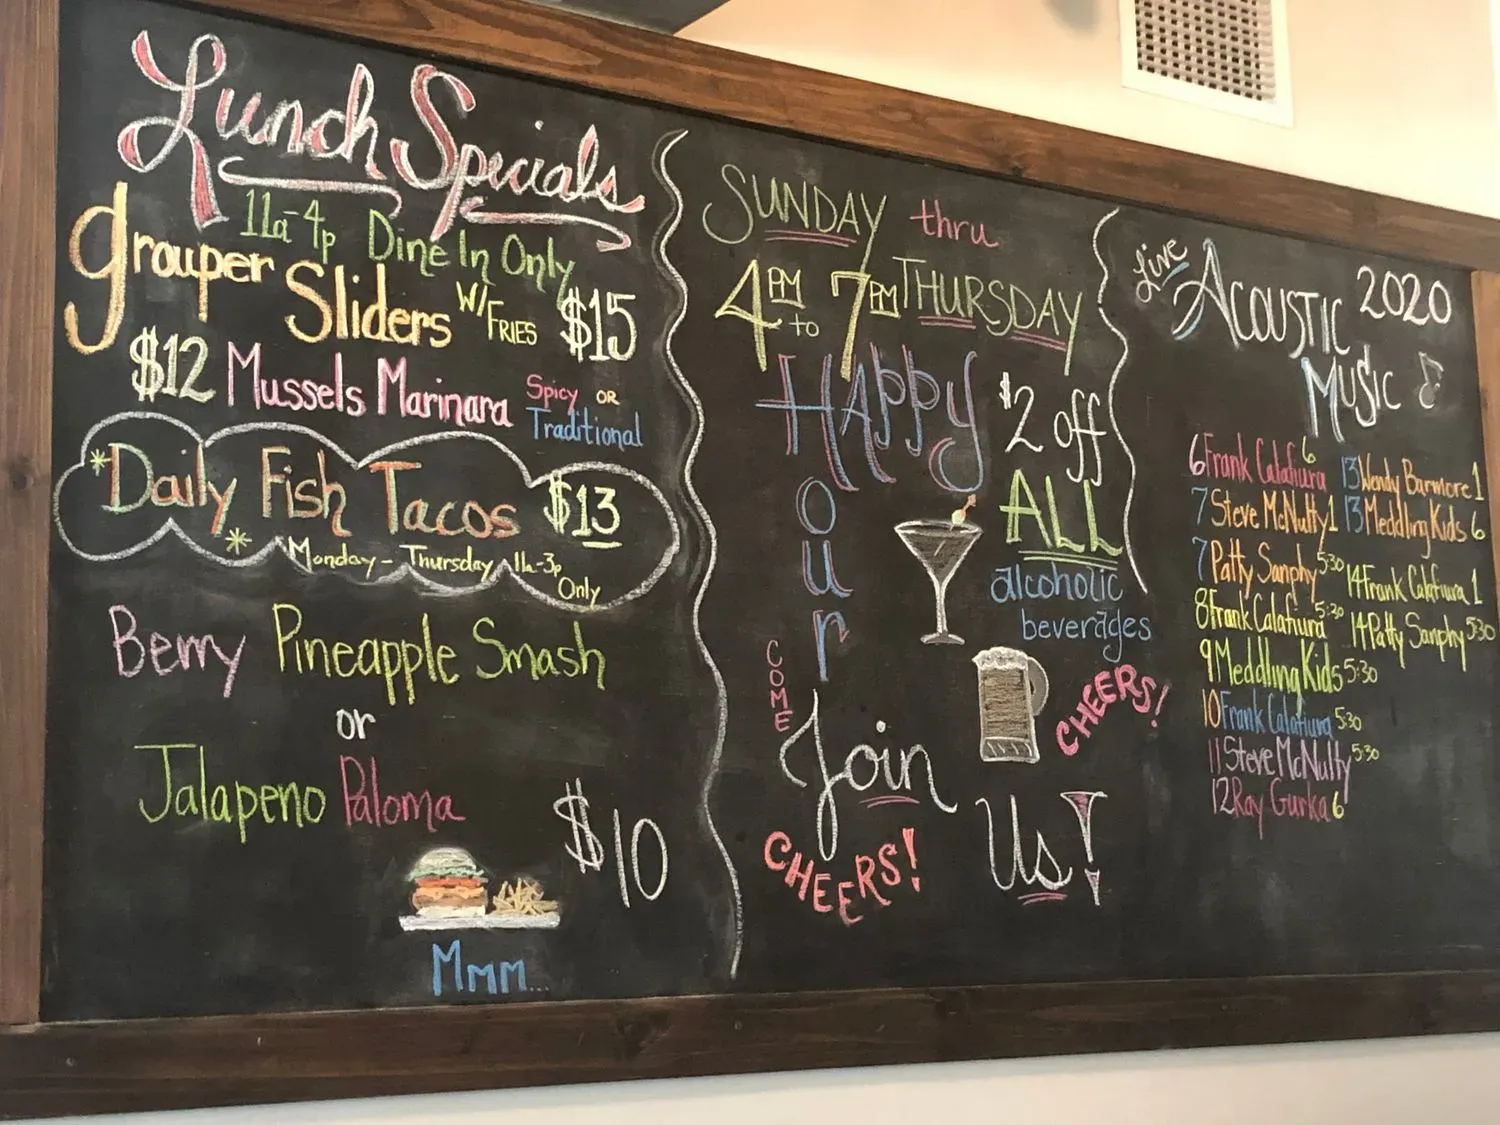 Lunch Specials
11a-4p Dine In Only
grouper Sliders W/FRIES $15
$12 Mussels Marinara Spicy OR Traditional
*Daily Fish Tacos $13
* Monday - Thursday 11a-3p Only
Berry Pineapple Smash
or
Jalapeno Paloma
$10
Mmm...
SUNDAY thru
4PM to 7PM THURSDAY
Happy Hour
$2 off
ALL
alcoholic
beverages
COME
Join
Us!
CHEERS!
CHEERS!
Live Acoustic 2020
Music
6 Frank Calafiura 6
7 Steve McNulty 1
7 Patty Sanphy 5:30
8 Frank Calafiura 5:30
9 Meddling Kids 5:30
10 Frank Calafiura 5:30
11 Steve McNulty 5:30
12 Ray Gurka 6
13 Wendy Barmore 1
13 Meddling Kids 6
14 Frank Calafiura 1
14 Patty Sanphy 5:30